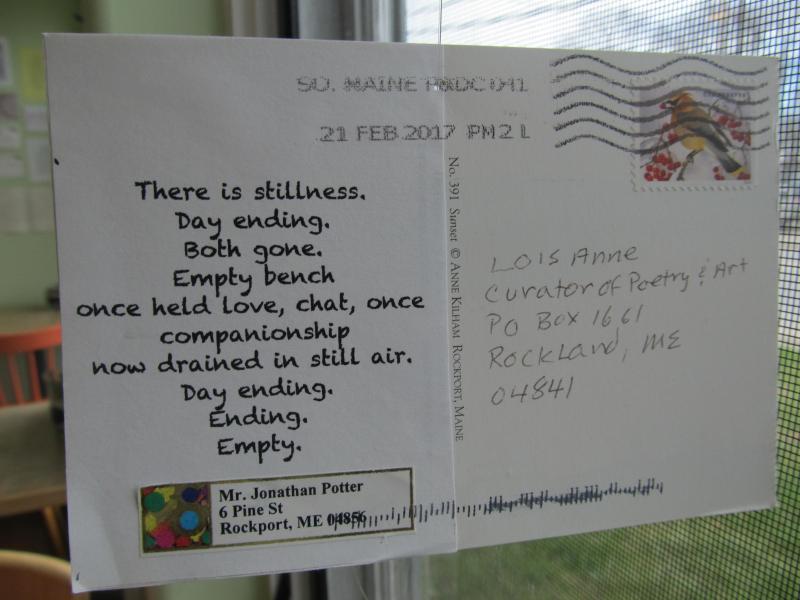 SO. MAINE P&DC 041
21 FEB 2017 PM 2 L
There is stillness.
Day ending.
Both gone.
Empty bench
once held love, chat, once
companionship
now drained in still air.
Day ending.
Ending.
Empty.
Mr. Jonathan Potter
6 Pine St
Rockport, ME 04856
No. 391 Sunset © ANNE KILHAM ROCKPORT, MAINE
Lois Anne
Curator of Poetry & Art
PO Box 1661
Rockland, ME
04841